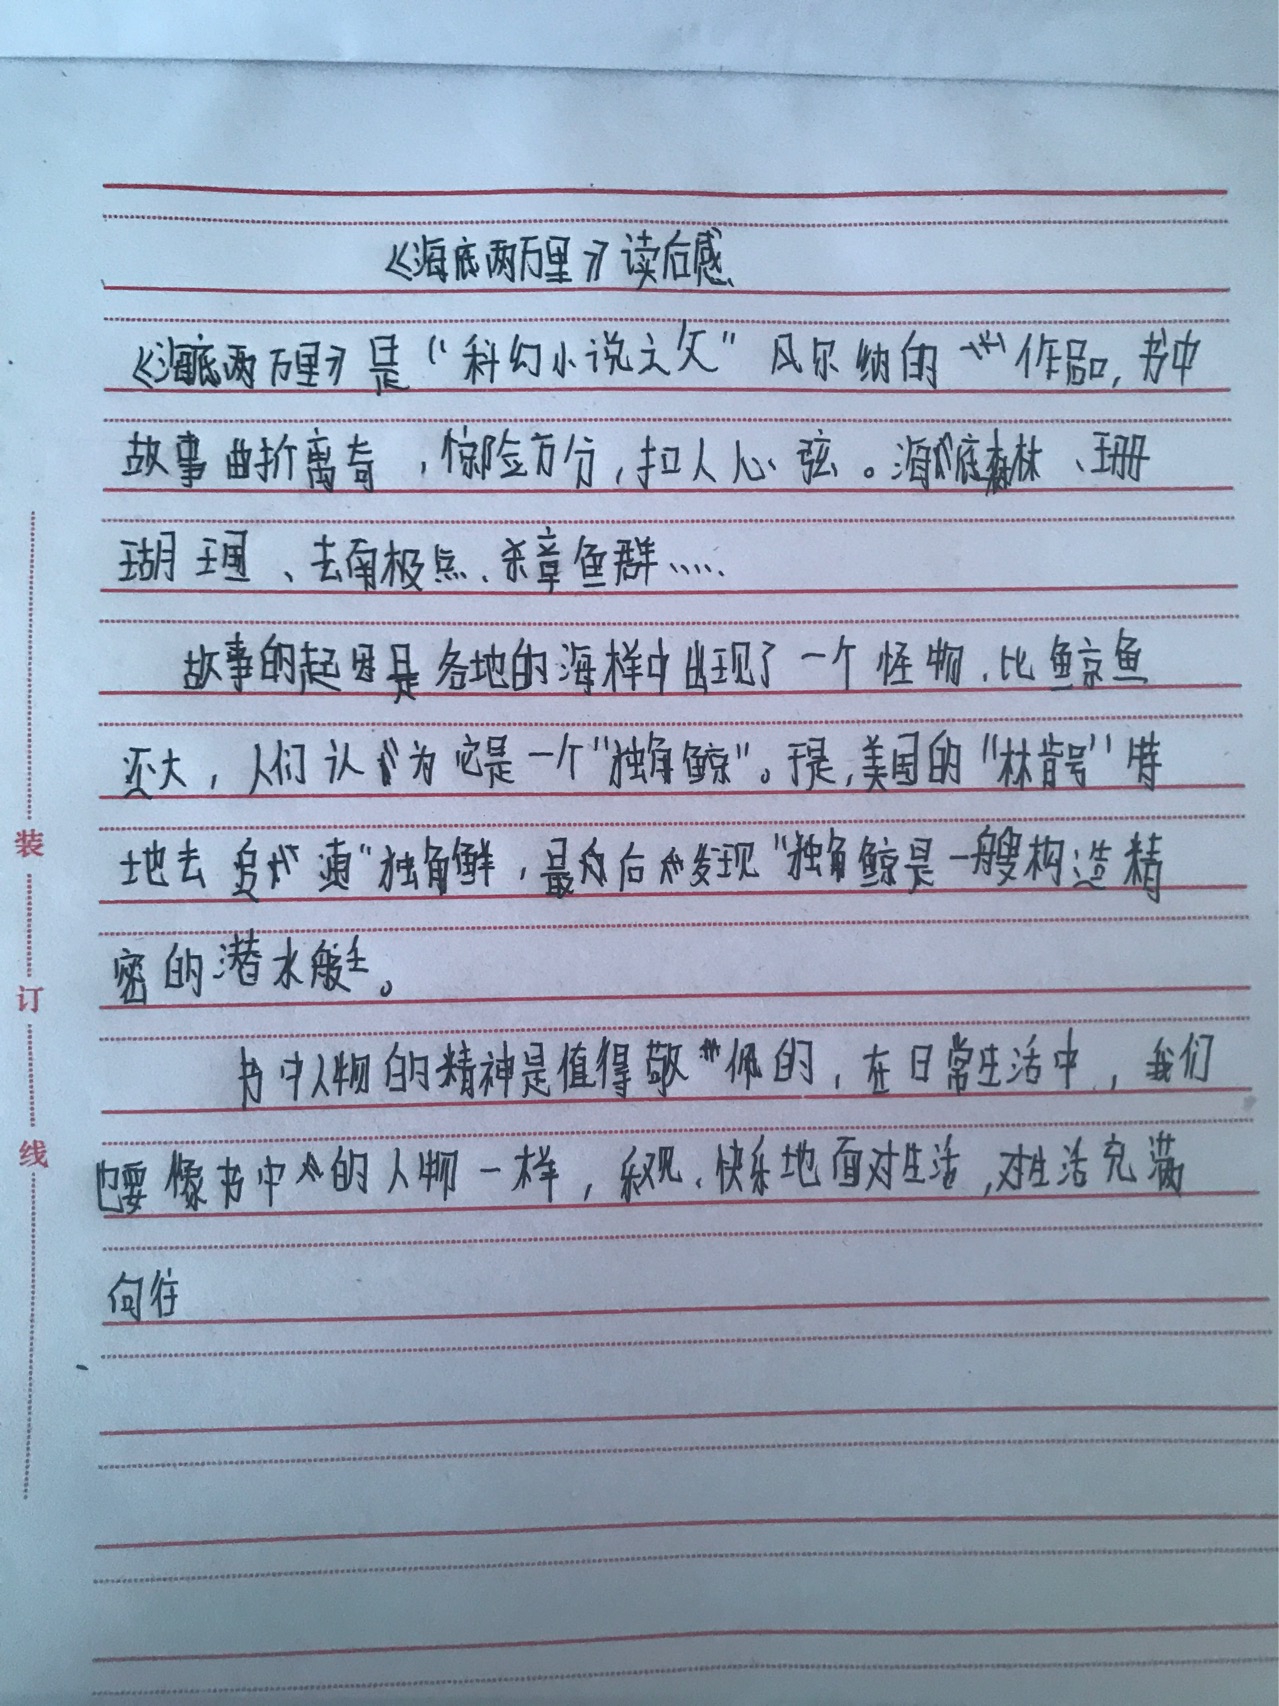 《海底两万里》读后感
《海底两万里》是“科幻小说之父”凡尔纳的作品，书中
故事曲折离奇，惊险万分，扣人心弦。海底森林、珊
瑚王国、去南极点、杀章鱼群……
故事的起因是各地的海样中出现了一个怪物，比鲸鱼
还大，人们认为它是一个“独角鲸”。于是，美国的“林肯号”特
地去追“独角鲜，最后发现“独角鲸是一艘构造精
密的潜水艇。
书中人物的精神是值得敬佩的，在日常生活中，我们
也要像书中的人物一样，乐观、快乐地面对生活，对生活充满
向往
装
订
线